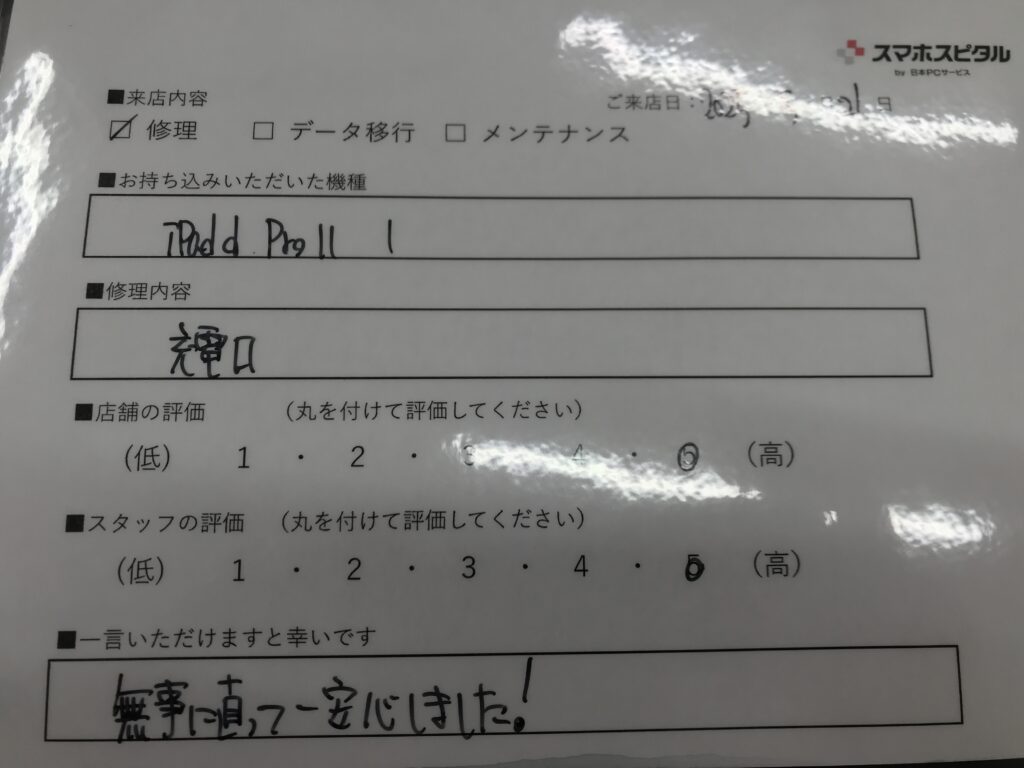 スマホスピタル
by 日本PCサービス
■来店内容
ご来店日：2025 21日
☑ 修理 □ データ移行 □ メンテナンス
■お持ち込みいただいた機種
iPadd Pro 11 1
■修理内容
充電口
■店舗の評価 （丸を付けて評価してください）
（低） 1 ・ 2 ・ 3 4 ・ 5 （高）
■スタッフの評価 （丸を付けて評価してください）
（低） 1 ・ 2 ・ 3 ・ 4 ・ 5 （高）
■一言いただけますと幸いです
無事に直って一安心しました！